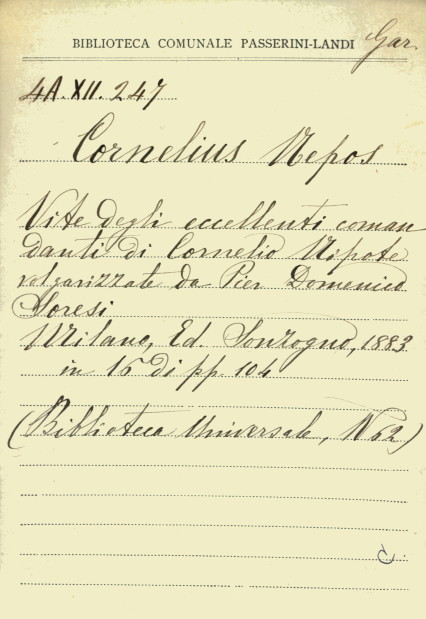 BIBLIOTECA COMUNALE PASSERINI-LANDI Gar.
4A.XII.247
Cornelius Nepos
Vite degli eccellenti coman
danti di Cornelio Nipote
volgarizzate da Pier Domenico
Soresi
Milano, Ed. Sonzogno, 1883
in 16 di pp. 104
(Biblioteca Universale, N 62)
C